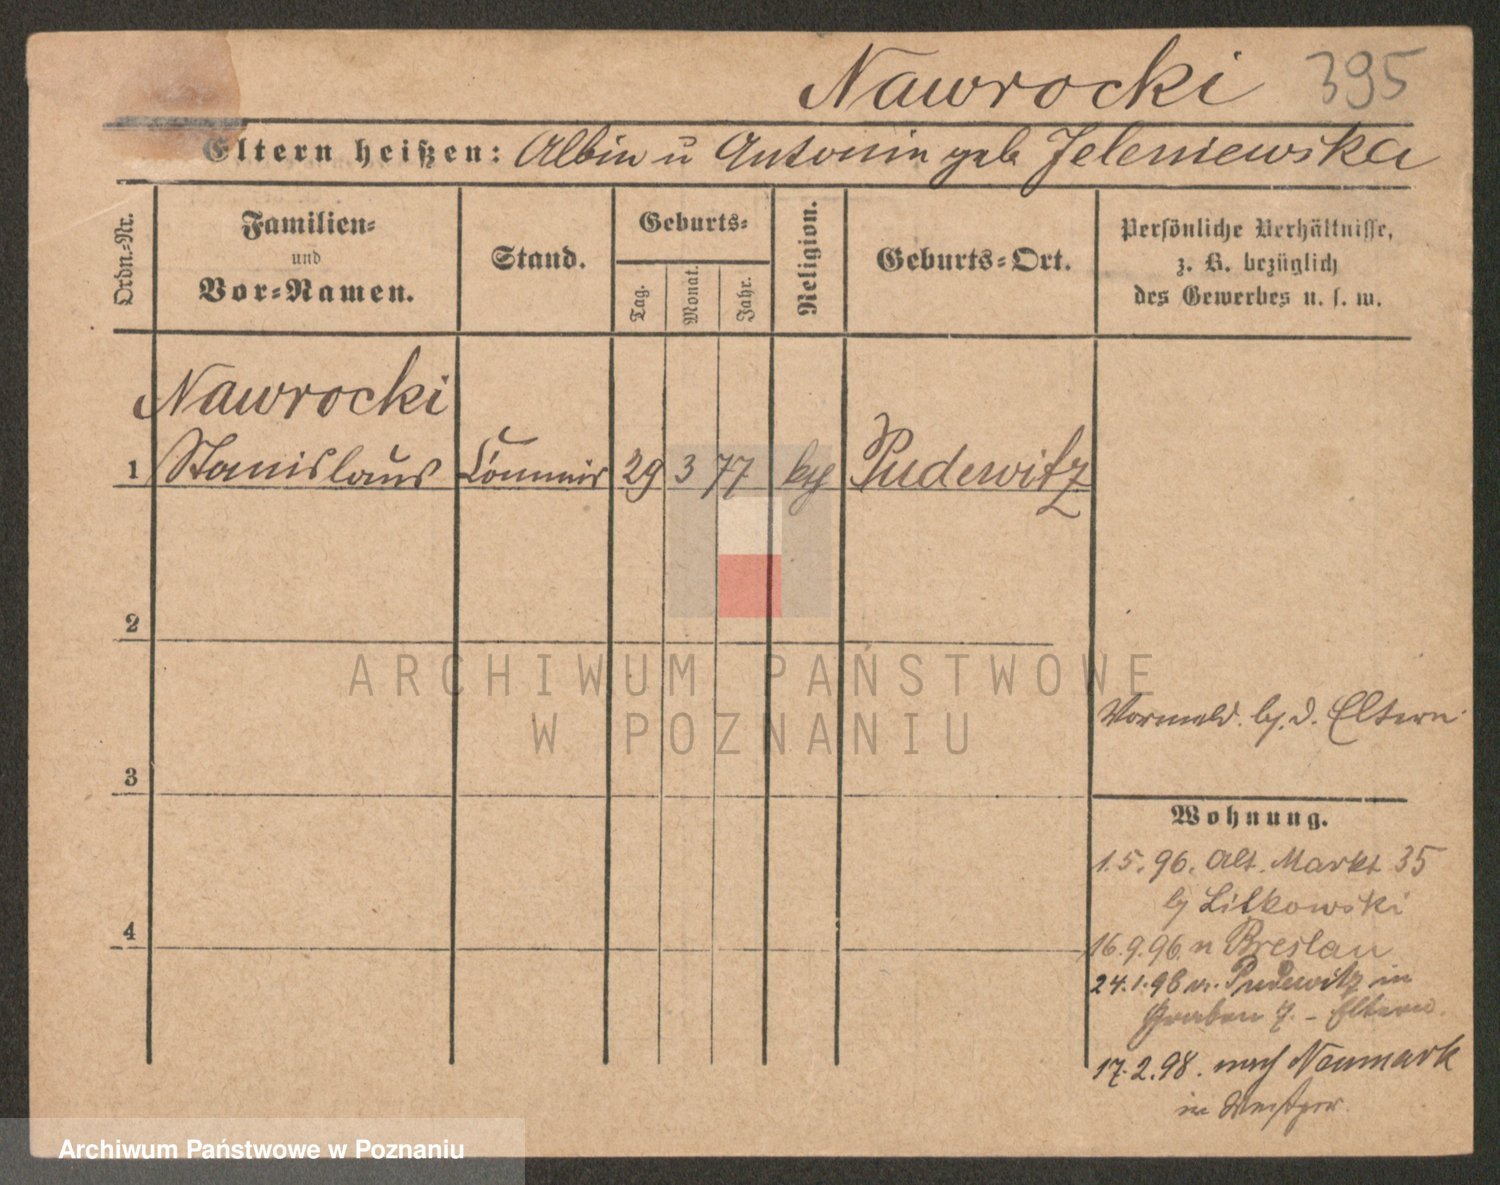 Nawrocki 395
Eltern heißen: Albin u Antonin geb Jeleniewska
Ordn.-Nr.
Familien-
und
Vor-Namen.
Stand.
Geburts-
Tag.
Monat.
Jahr.
Religion.
Geburts-Ort.
Persönliche Verhältnisse,
z. B. bezüglich
des Gewerbes u. s. w.
Nawrocki
1 Stanislaus Commis 29 3 77 kth Pudewitz
2
ARCHIWUM PAŃSTWOWE
W POZNANIU
Vormeld. bj. d. Eltern
3
Wohnung.
1.5.96. Alt. Markt 35
bj Litkowski
4
16.9.96. n Breslau
24.1.98 v. Pudewitz in
Graben 7. - Eltern.
17.2.98. nach Neumark
in Westpr.
Archiwum Państwowe w Poznaniu